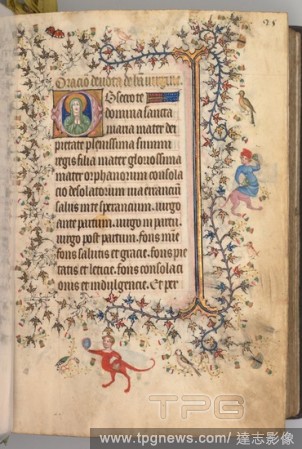 95
Oracio deuota de b̃a uirgine.
Obsecro te
domina sancta
maria mater dei
pietate plenissima summi
regis filia mater gloriosissima
mater orphanorum consola
cio desolatorum uia erranciū
salus in te sperancium. uirgo
ante partum. uirgo in partu.
uirgo post partum. fons mi&e
fons salutis et gracie. fons pie
tatis et leticie. fons consolaci
onis et indulgencie. Et per
TPG
www.tpgnews.com/達志影像